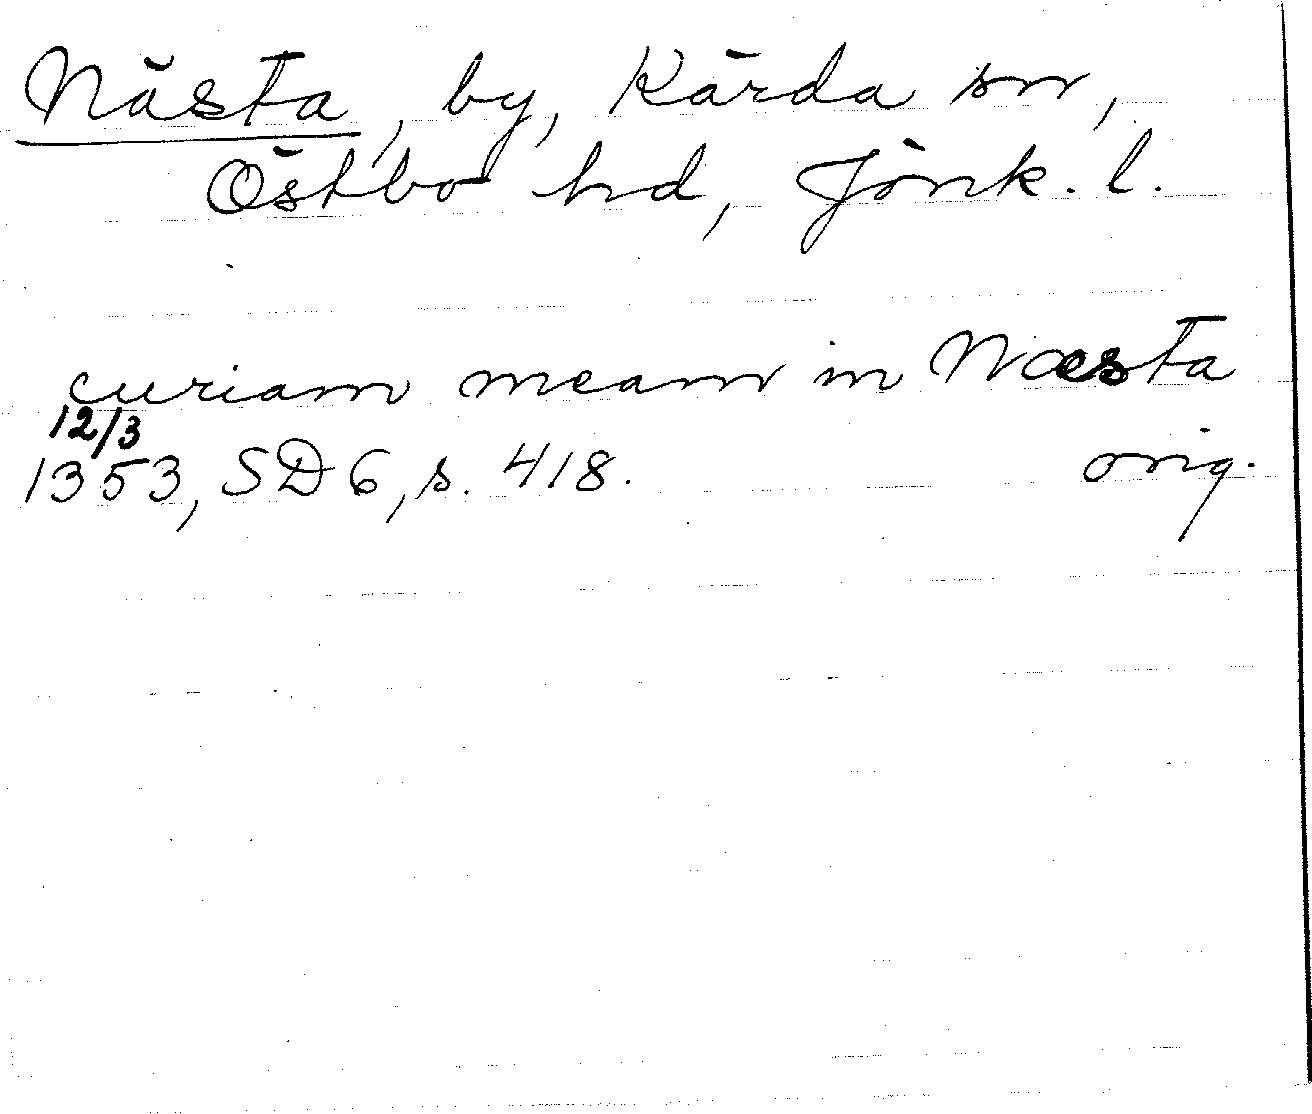 Nästa, by, Kärda sn,
Östbo hd, Jönk. l.
curiam meam in Næsta
12/3
1353, SD 6, s. 418. orig.